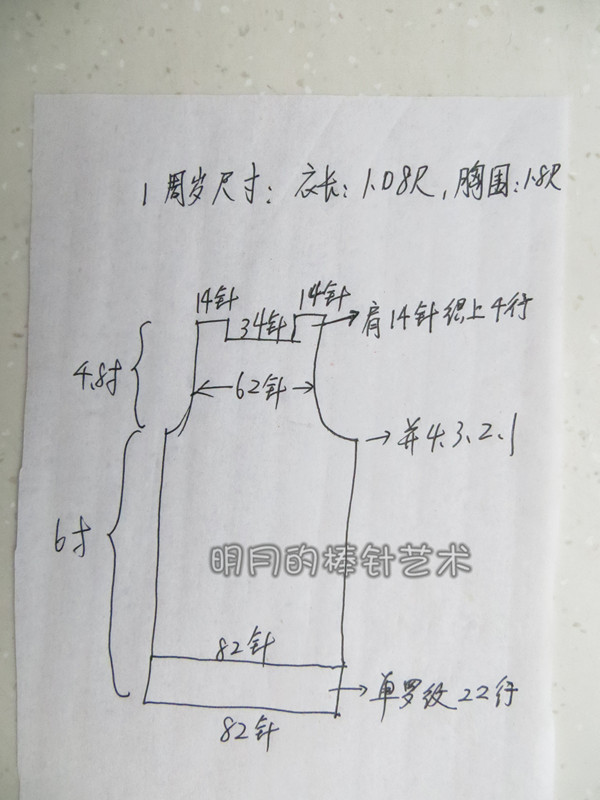 1周岁尺寸：衣长：1.08尺，胸围：1.8尺
14针 14针
34针
肩14针织上4行
4.8寸
62针
并4.3.2.1
6寸
明月的棒针艺术
82针
单罗纹22行
82针